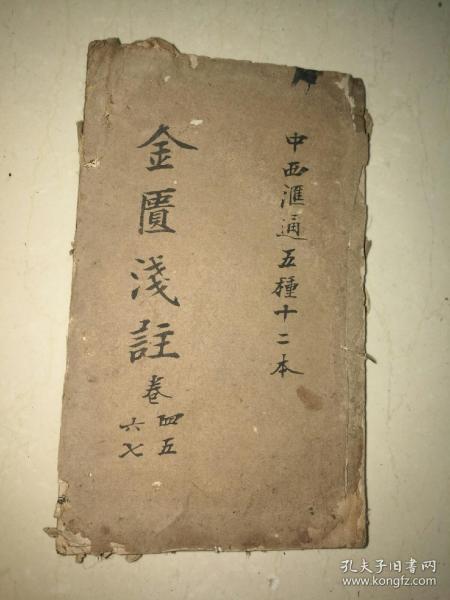 中西滙通五種十二本
金匱淺註
卷四五
六七
孔夫子旧书网
www.kongfz.com